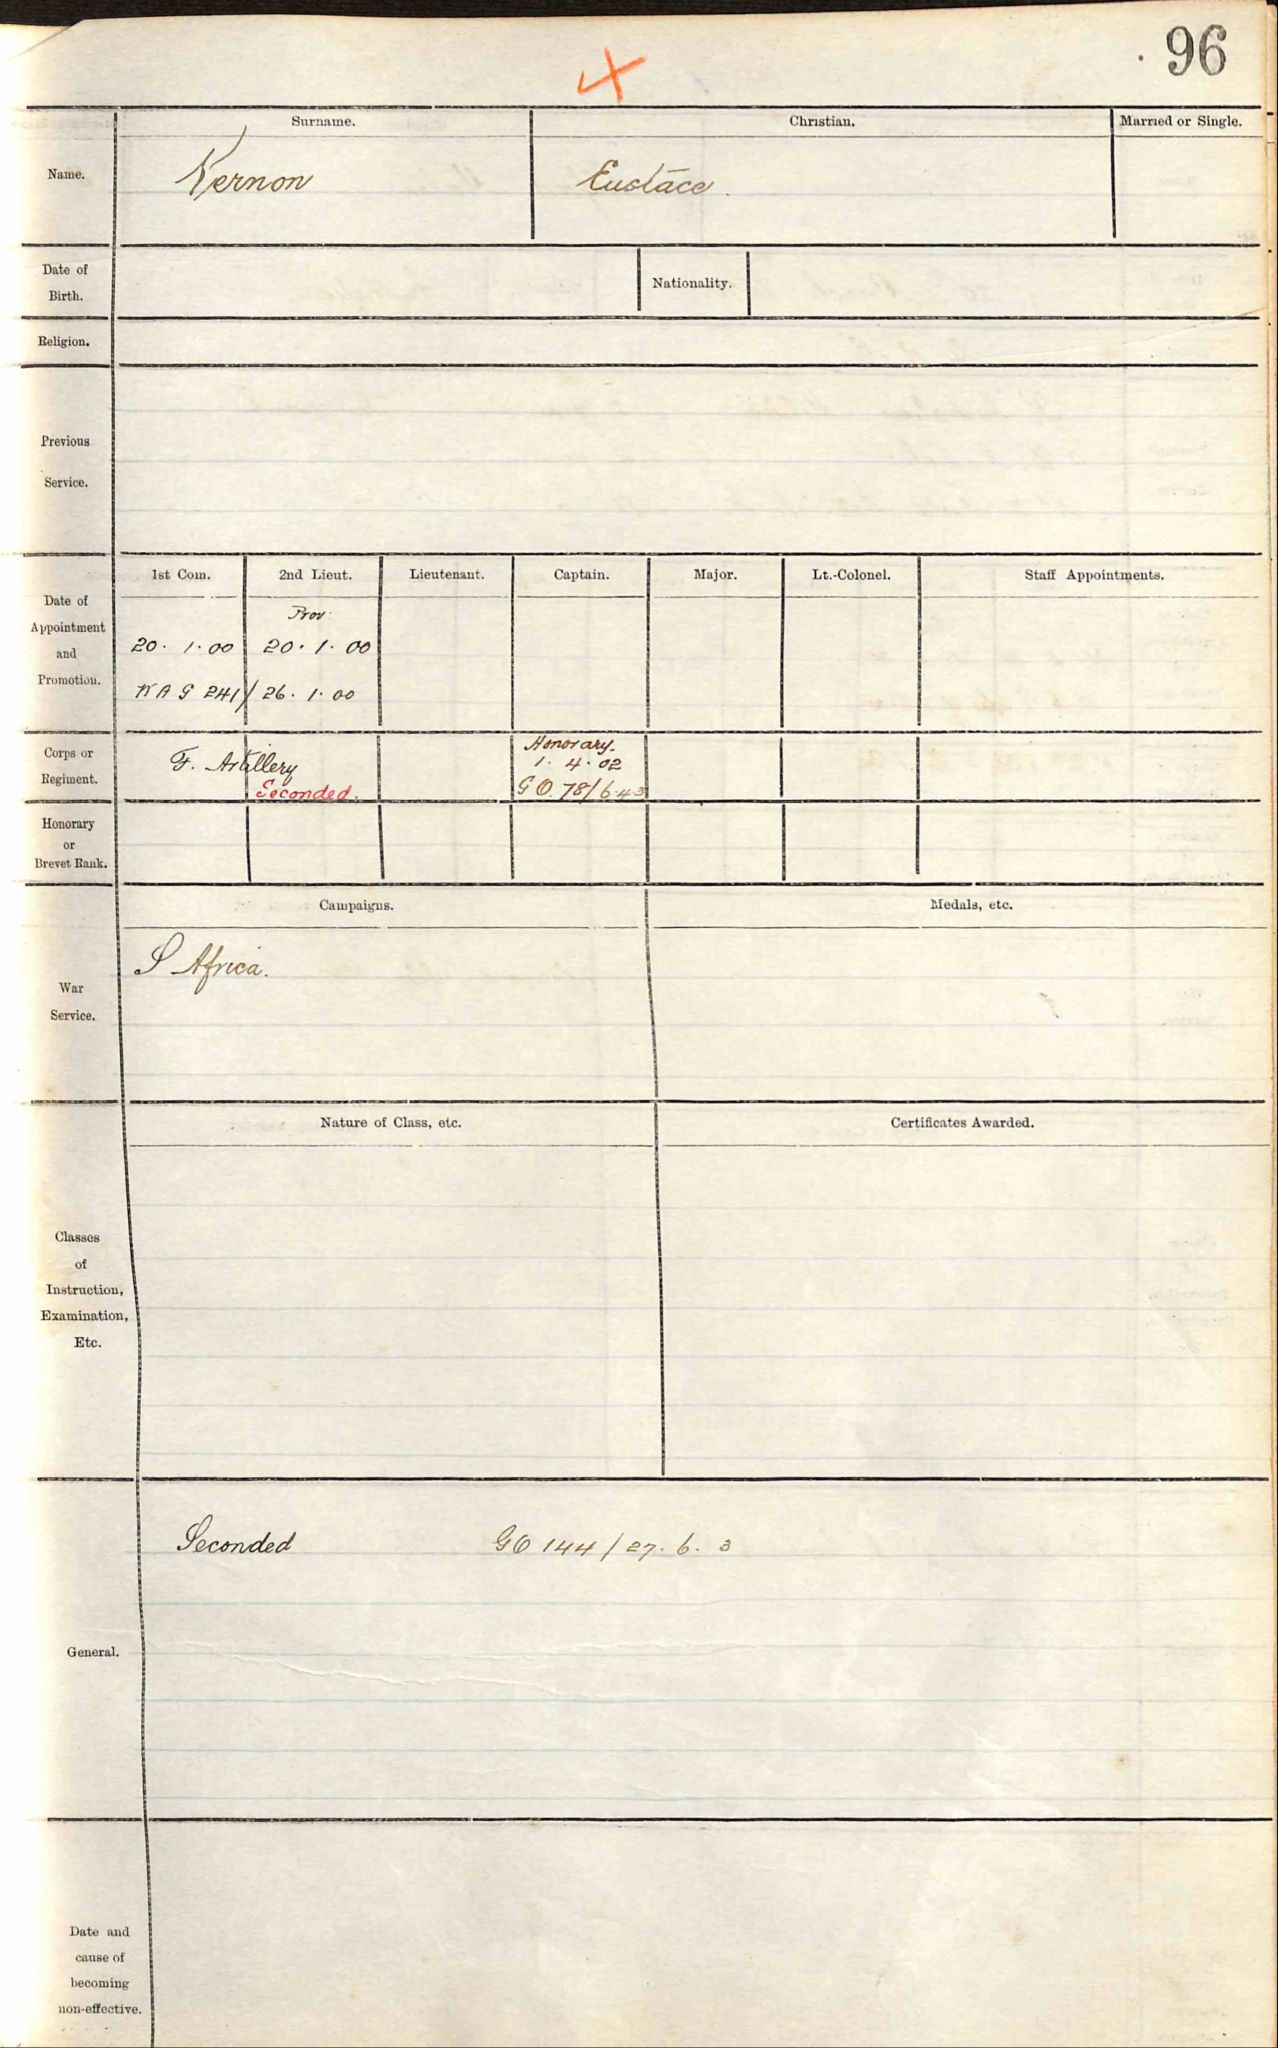 96
Surname. Christian. Married or Single.
Name. Vernon Eustace.
Date of
Birth. Nationality.
Religion.
Previous
Service.
1st Com. 2nd Lieut. Lieutenant. Captain. Major. Lt.-Colonel. Staff Appointments.
Date of
Appointment
and
Promotion.
Prov.
20. 1. 00 20. 1. 00
WAG 241/26. 1. 00
Corps or
Regiment. F. Artillery
Seconded.
Honorary.
1. 4. 02
GO. 78/6.4.3
Honorary
or
Brevet Rank.
Campaigns. Medals, etc.
War
Service. S Africa.
Nature of Class, etc. Certificates Awarded.
Classes
of
Instruction,
Examination,
Etc.
Seconded GO 144/27. 6. 3
General.
Date and
cause of
becoming
non-effective.